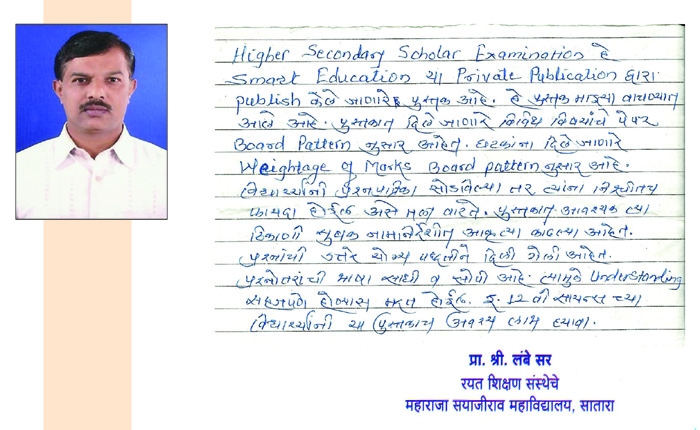 Higher Secondary Scholar Examination हे
Smart Education या Private Publication द्वारा
publish केले जाणारे पुस्तक आहे. हे पुस्तक माझ्या वाचण्यात
आले आहे. पुस्तकात दिले जाणारे विविध विषयांचे पेपर
Board Pattern नुसार आहेत. घटकांना दिले जाणारे
Weightage of Marks Board pattern नुसार आहे.
विद्यार्थ्यांनी प्रश्नपत्रिका सोडविल्या तर त्यांना निश्चीतच
फायदा होईल असे मला वाटते. पुस्तकात आवश्यक त्या
ठिकाणी सुबक नामनिर्देशीत आकृत्या काढल्या आहेत.
प्रश्नांची उत्तरे योग्य पध्दतीने दिली गेली आहेत.
प्रश्नोत्तरांची भाषा साधी व सोपी आहे. त्यामुळे Understanding
सहजपणे होण्यास मदत होईल. इ. 12 वी सायन्स च्या
विद्यार्थ्यांनी या पुस्तकाचा अवश्य लाभ घ्यावा.
प्रा. श्री. लंबे सर
रयत शिक्षण संस्थेचे
महाराजा सयाजीराव महाविद्यालय, सातारा